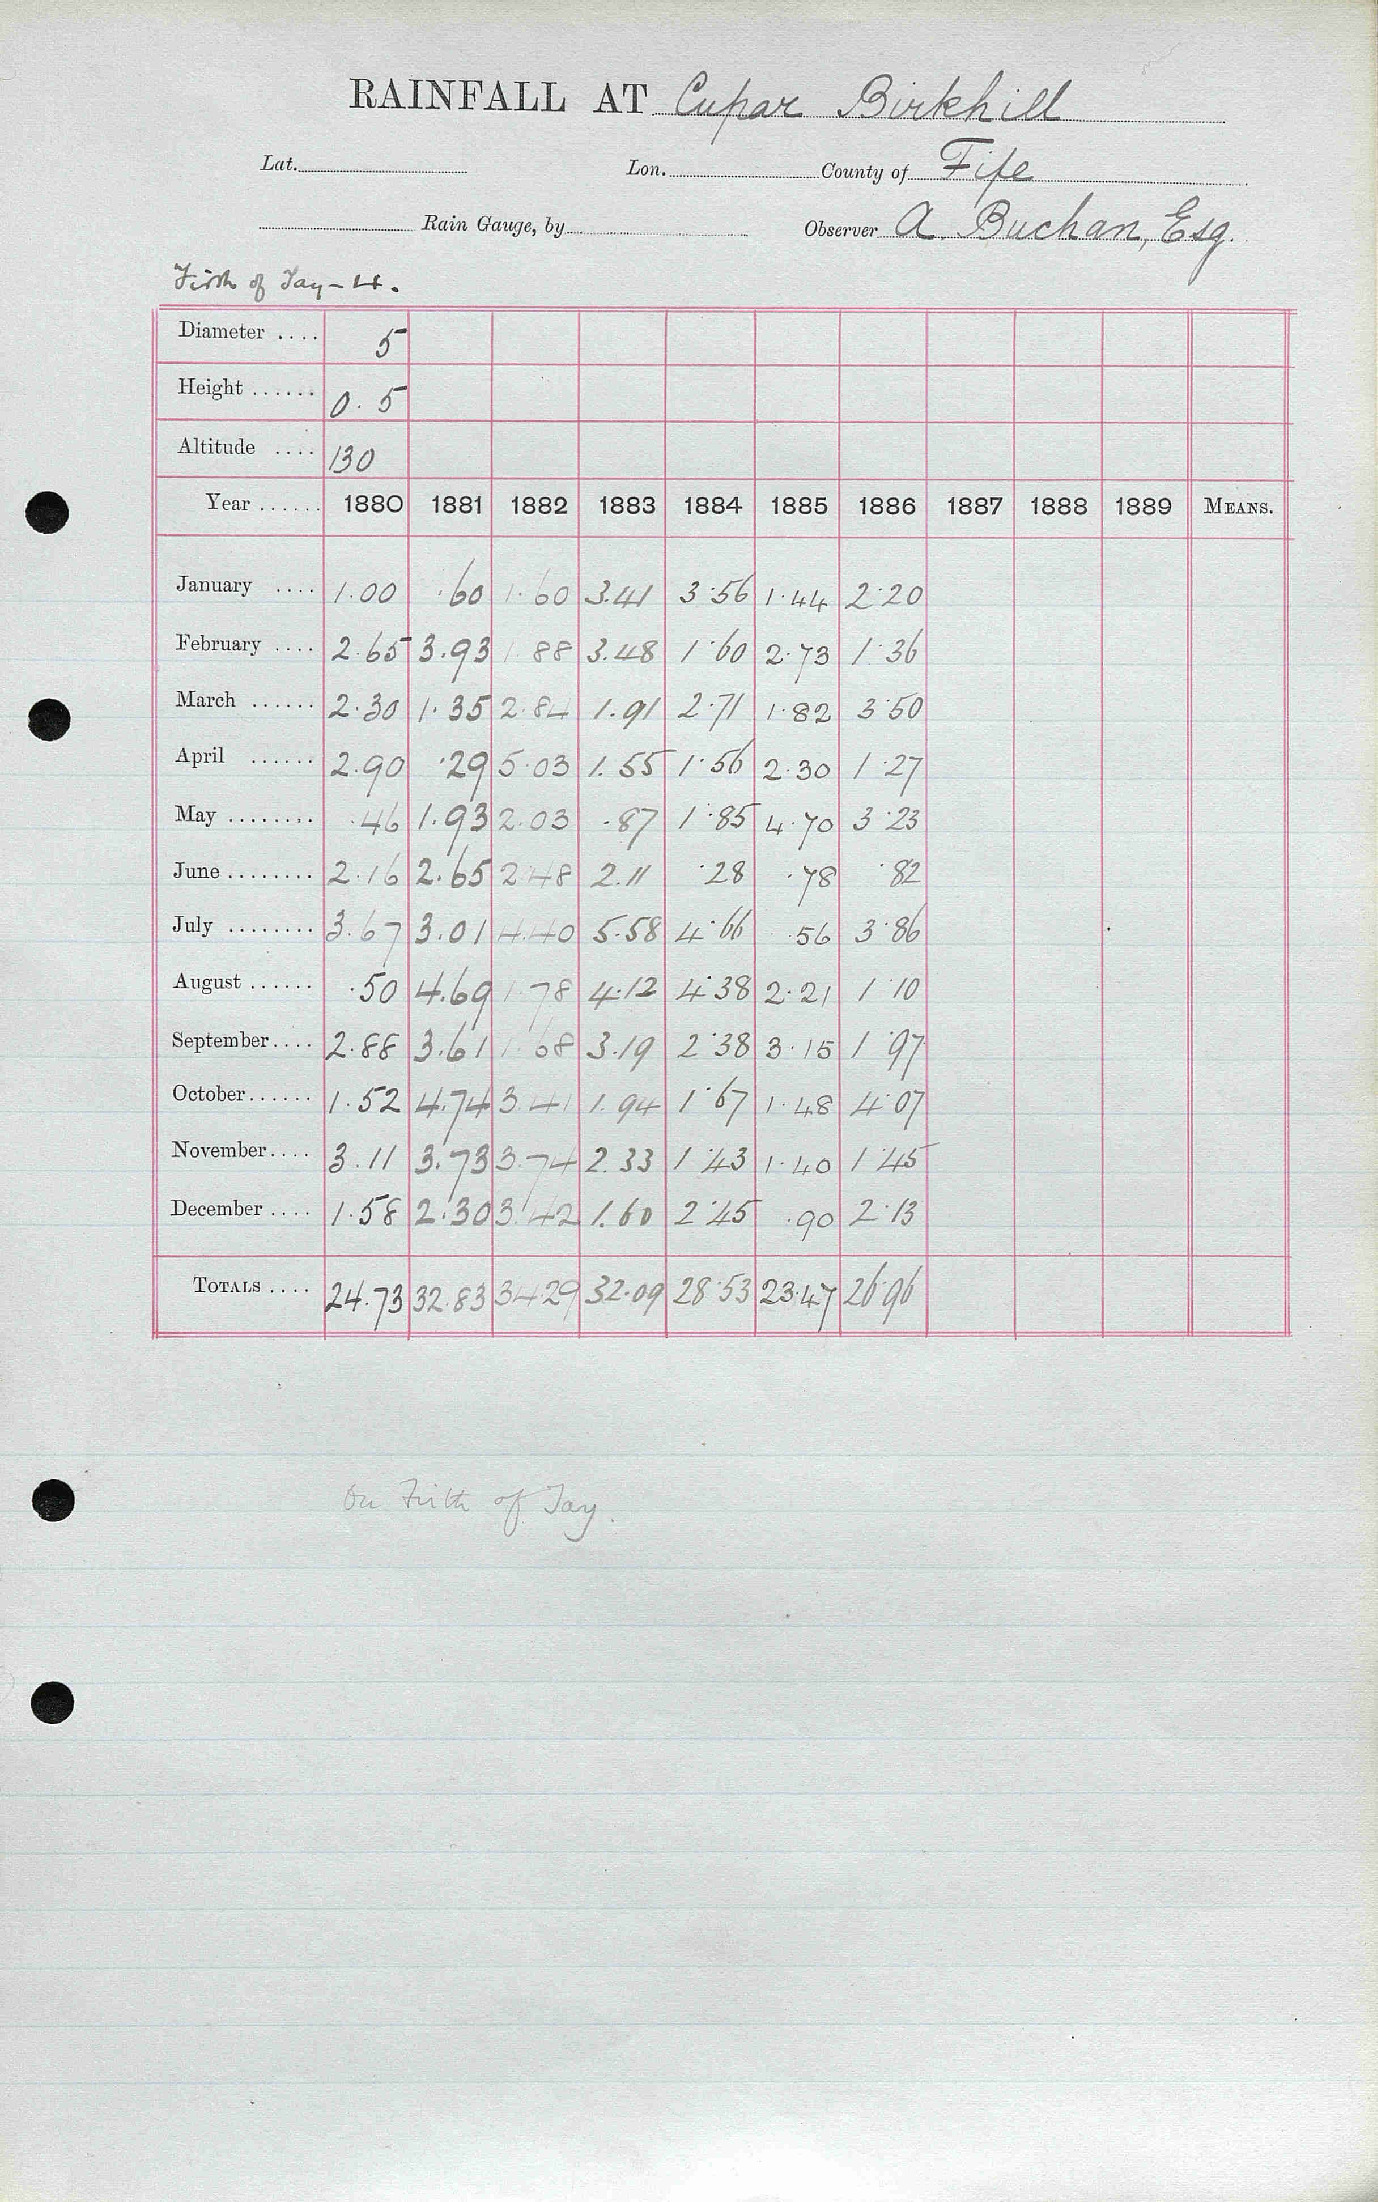 RAINFALL AT Cupar Birkhill
Lat. Lon. County of Fife
Rain Gauge, by Observer A. Buchan, Esq.
Firth of Tay - 4.
Diameter .... 5
Height ...... 0.5
Altitude .... 130
Year ...... 1880 1881 1882 1883 1884 1885 1886 1887 1888 1889 MEANS.
January .... 1.00 .60 1.60 3.41 3.56 1.44 2.20
February .... 2.65 3.93 1.88 3.48 1.60 2.73 1.36
March ...... 2.30 1.35 2.84 1.91 2.71 1.82 3.50
April ...... 2.90 .29 5.03 1.55 1.56 2.30 1.27
May ........ .46 1.93 2.03 .87 1.85 4.70 3.23
June ........ 2.16 2.65 2.48 2.11 .28 .78 .82
July ........ 3.67 3.01 4.40 5.58 4.66 .56 3.86
August ...... .50 4.69 1.78 4.12 4.38 2.21 1.10
September .... 2.88 3.61 1.68 3.19 2.38 3.15 1.97
October ...... 1.52 4.74 3.41 1.94 1.67 1.48 4.07
November .... 3.11 3.73 3.74 2.33 1.43 1.40 1.45
December .... 1.58 2.30 3.42 1.60 2.45 .90 2.13
TOTALS .... 24.73 32.83 34.29 32.09 28.53 23.47 26.96
On Firth of Tay.